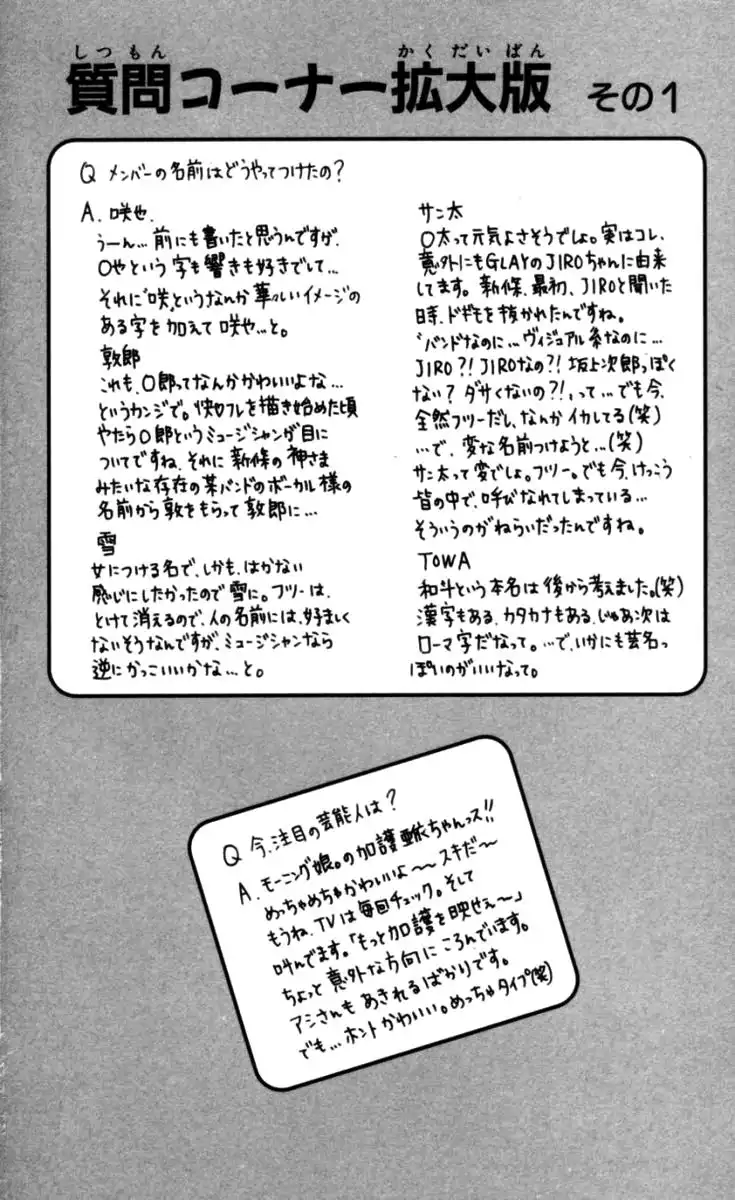 しつもん かくだいばん
質問コーナー拡大版 その1
Q メンバーの名前はどうやってつけたの?
A. 咲也
うーん…前にも書いたと思うんですが、
○やという字も響きも好きでして…
それに"咲"というなんか華々しいイメージの
ある字を加えて咲也…と。
敦郎
これも、○郎ってなんかかわいいよな…
というカンジで。快ワレを描き始めた頃
やたら○郎というミュージシャンが目に
ついてですね、それに新條の神さま
みたいな存在の某バンドのボーカル様の
名前から敦をもらって敦郎に…
雪
女につける名で、しかも、はかない
感じにしたかったので雪に。フツーは、
とけて消えるので、人の名前には、好ましく
ないそうなんですが、ミュージシャンなら
逆にかっこいいかな…と。
サン太
○太って元気よさそうでしょ。実はコレ、
意外にもGLAYのJIROちゃんに由来
してます。新條、最初、JIROと聞いた
時、ドギモを抜かれたんですね。
"バンドなのに…ヴィジュアル系なのに…
JIRO?! JIROなの?! 坂上次郎っぽく
ない? ダサくないの?!"って…でも今、
全然フツーだし、なんかイカしてる(笑)
…で、変な名前つけようと…(笑)
サン太って変でしょ。フツー。でも今、けっこう
皆の中で、呼びなれてしまっている…
そういうのがねらいだったんですね。
TOWA
和斗という本名は後から考えました。(笑)
漢字もある、カタカナもある、じゃあ次は
ローマ字だなって。…で、いかにも芸名っ
ぽいのがいいなって。
Q 今、注目の芸能人は?
A. モーニング娘。の加護亜依ちゃんっス!!
めっちゃめちゃかわいいよ〜〜スキだ〜
もうね、TVは毎回チェック。そして
叫んでます。「もっと加護を映せぇ〜」
ちょっと意外な方向にころんでいます。
アシさんもあきれるばかりです。
でも…ホントかわいい。めっちゃタイプ(笑)